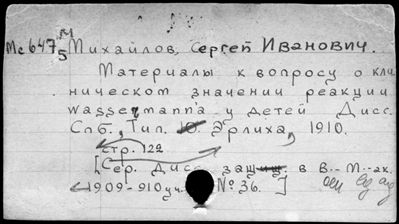 Мс 647/5 Михайлов, Сергей Иванович.
Материалы к вопросу о кли
ническом значении реакции
Wassermann'a у детей. Дисс.
Спб, Тип. Ю. Эрлиха, 1910.
стр. 122
[Сер. дисс. защищ. в В.-М. ак.
1909-910 уч. № 36. ]